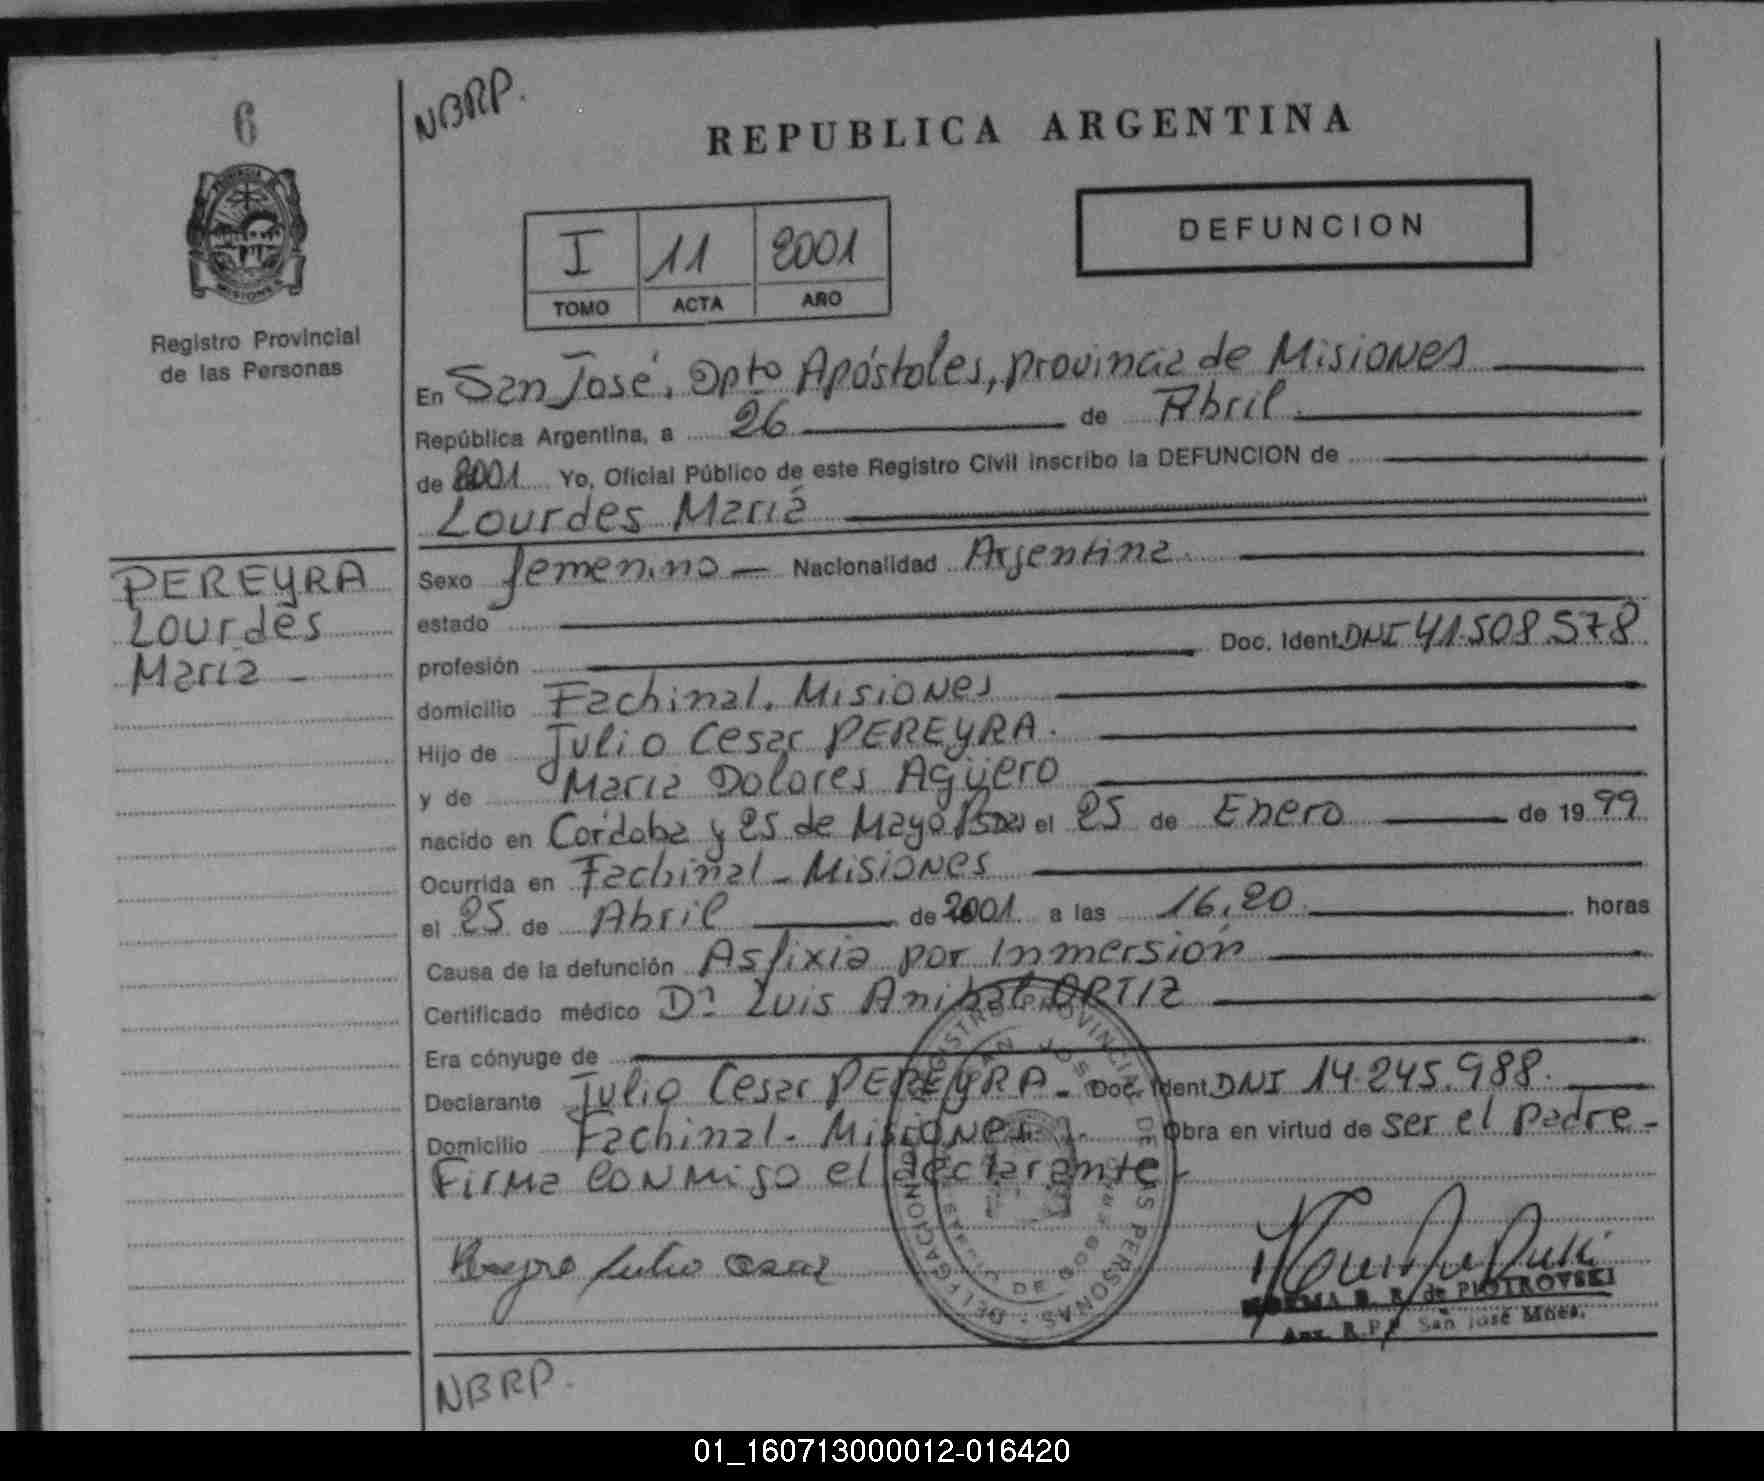 6
NBRP.
REPUBLICA ARGENTINA
PROVINCIA
MISIONES
Registro Provincial
de las Personas
I 11 2001
TOMO ACTA AÑO
DEFUNCION
En San José, Dpto Apóstoles, provincia de Misiones
República Argentina, a 26 de Abril.
de 2001 Yo, Oficial Público de este Registro Civil inscribo la DEFUNCION de
Lourdes María
PEREYRA
Lourdes
María -
Sexo femenino - Nacionalidad Argentina.
estado
profesión Doc. Ident. DNI 41.508.578
domicilio Fachinal. Misiones
Hijo de Julio Cesar PEREYRA.
y de María Dolores Agüero
nacido en Córdoba y 25 de Mayo Psdas el 25 de Enero de 1999
Ocurrida en Fachinal - Misiones
el 25 de Abril de 2001 a las 16,20 horas
Causa de la defunción Asfixia por Inmersión
Certificado médico Dr. Luis Anibal ORTIZ
Era cónyuge de
Declarante Julio Cesar PEREYRA - Doc. Ident. DNI 14.245.988.
Domicilio Fachinal - Misiones. Obra en virtud de ser el padre -
Firma conmigo el declarante -
REGISTRO PROVINCIAL DE LAS PERSONAS
DELEGACION
SAN JOSE
Pereyra Julio Cesar
NORMA B. R. de PIOTROVSKI
Aux. R.P.P. San José Mnes.
NBRP.
01_160713000012-016420